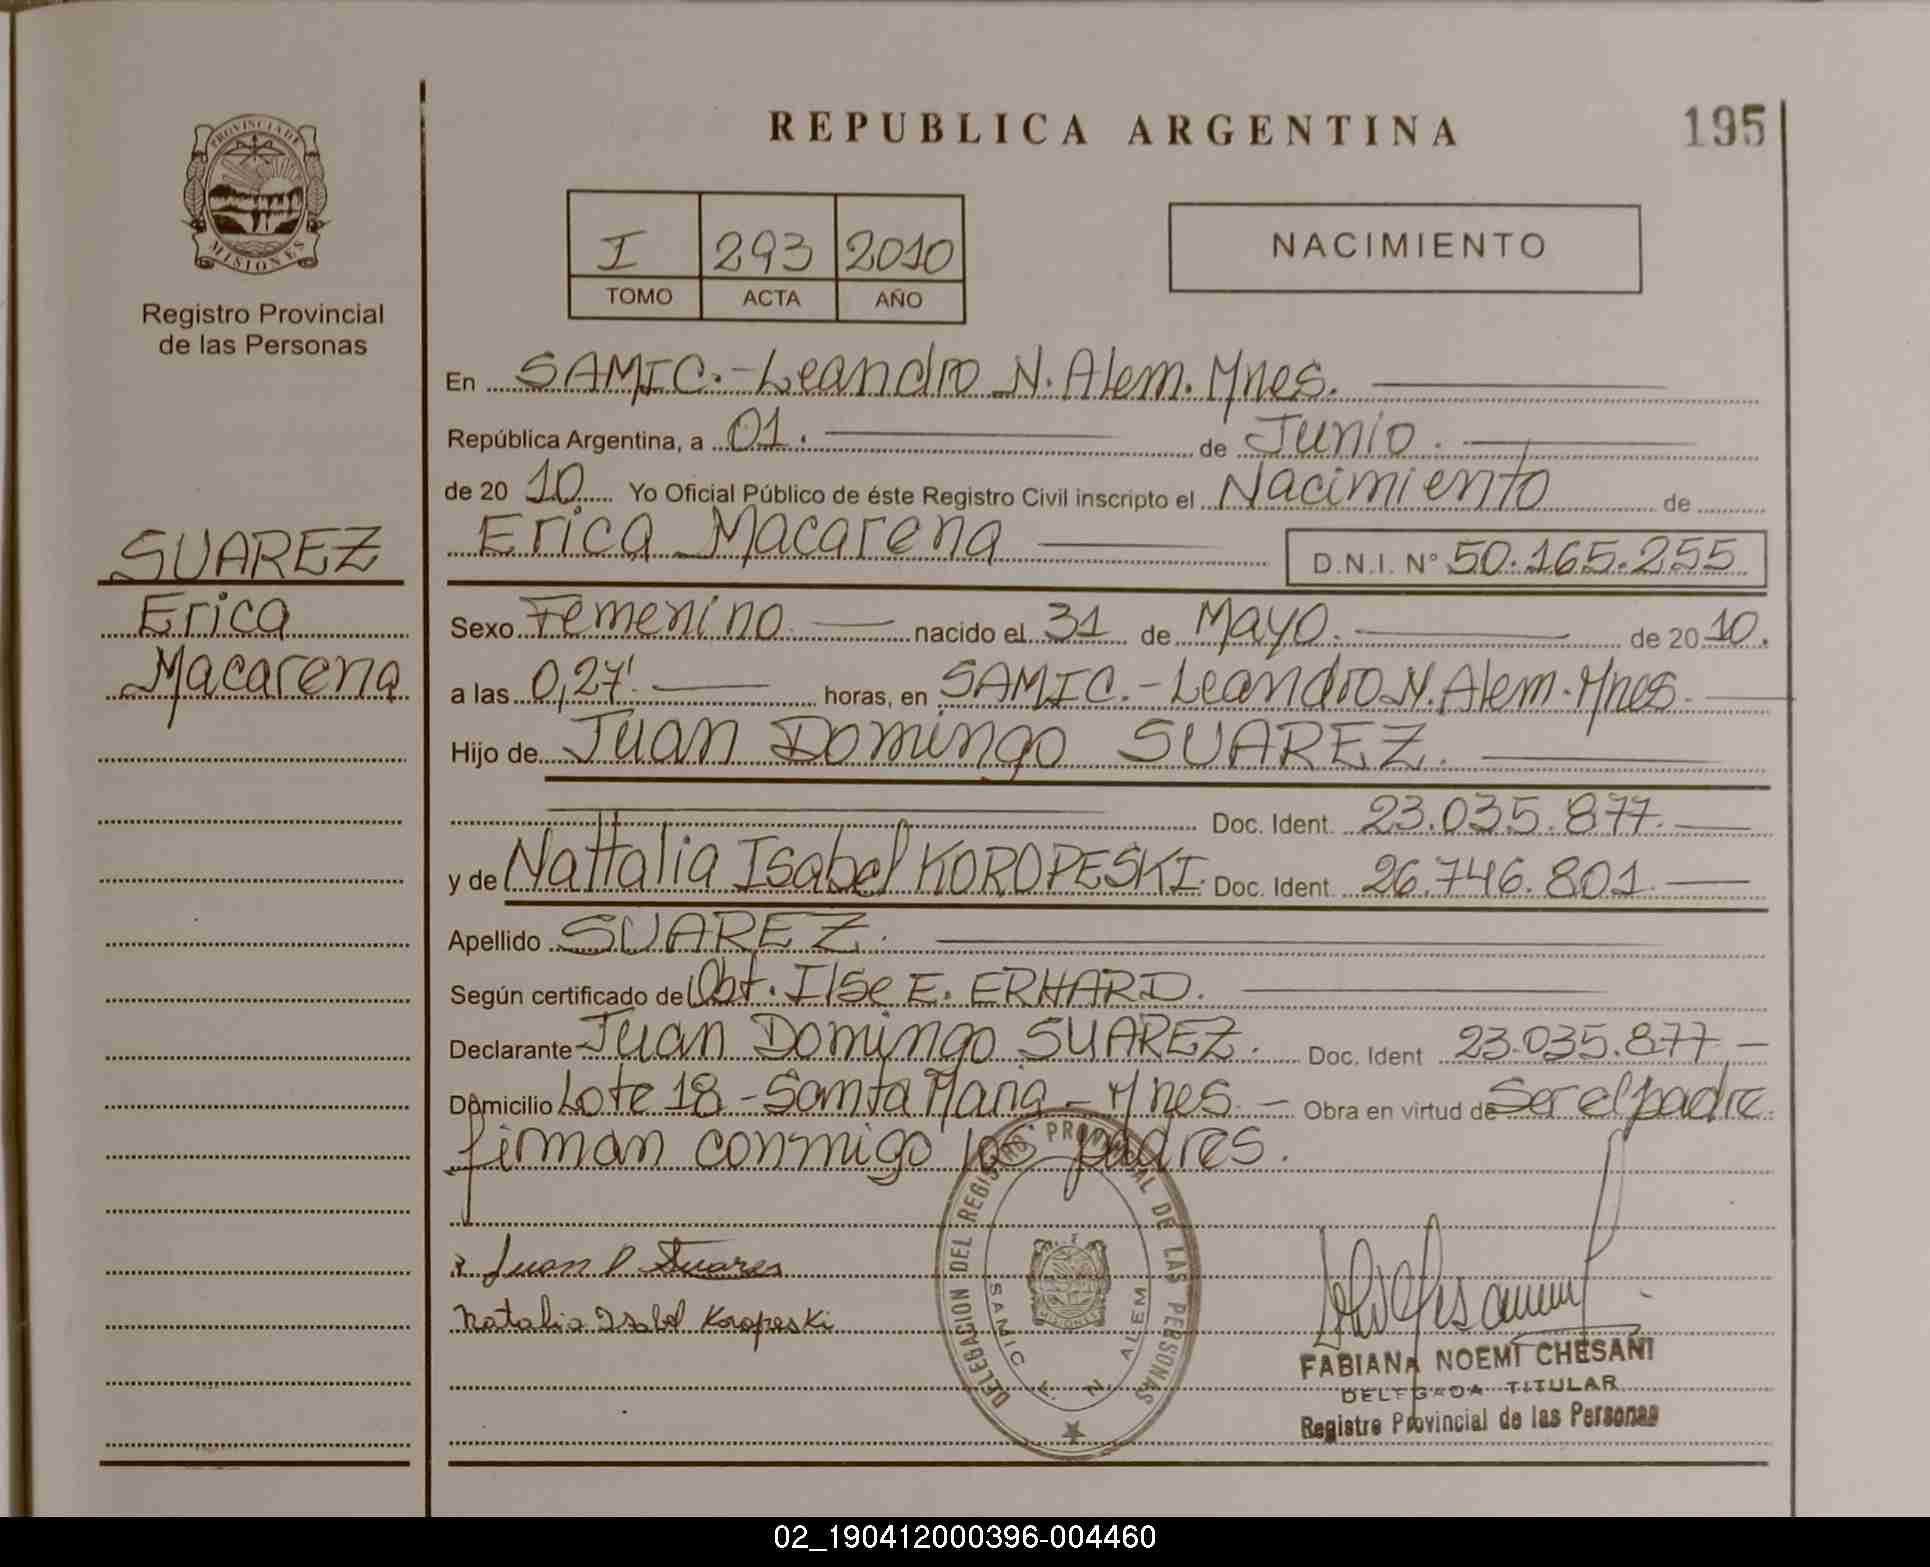 REPUBLICA ARGENTINA
195
PROVINCIA DE
MISIONES
Registro Provincial
de las Personas
I 293 2010
TOMO ACTA AÑO
NACIMIENTO
En SAMIC.-Leandro N. Alem. Mnes.
República Argentina, a 01. de Junio.
de 20 10 Yo Oficial Público de éste Registro Civil inscripto el Nacimiento de
Erica Macarena D.N.I. Nº 50.165.255
SUAREZ
Erica
Macarena
Sexo Femenino nacido el 31 de Mayo. de 20 10.
a las 0,27'. horas, en SAMIC.-Leandro N. Alem. Mnes.
Hijo de Juan Domingo SUAREZ.
Doc. Ident. 23.035.877.
y de Nattalia Isabel KOROPESKI. Doc. Ident. 26.746.801.
Apellido SUAREZ.
Según certificado de Obt. Ilse E. ERHARD.
Declarante Juan Domingo SUAREZ. Doc. Ident 23.035.877.
Domicilio Lote 18 - Santa Maria - Mnes. - Obra en virtud de Ser el padre
firman conmigo los padres.
Juan D Suares
Natalia Isabel Koropeski
DELEGACION DEL REGISTRO PROVINCIAL DE LAS PERSONAS
SAMIC L. N. ALEM
MISIONES
FABIANA NOEMI CHESANI
DELEGADA TITULAR
Registro Provincial de las Personas
02_190412000396-004460